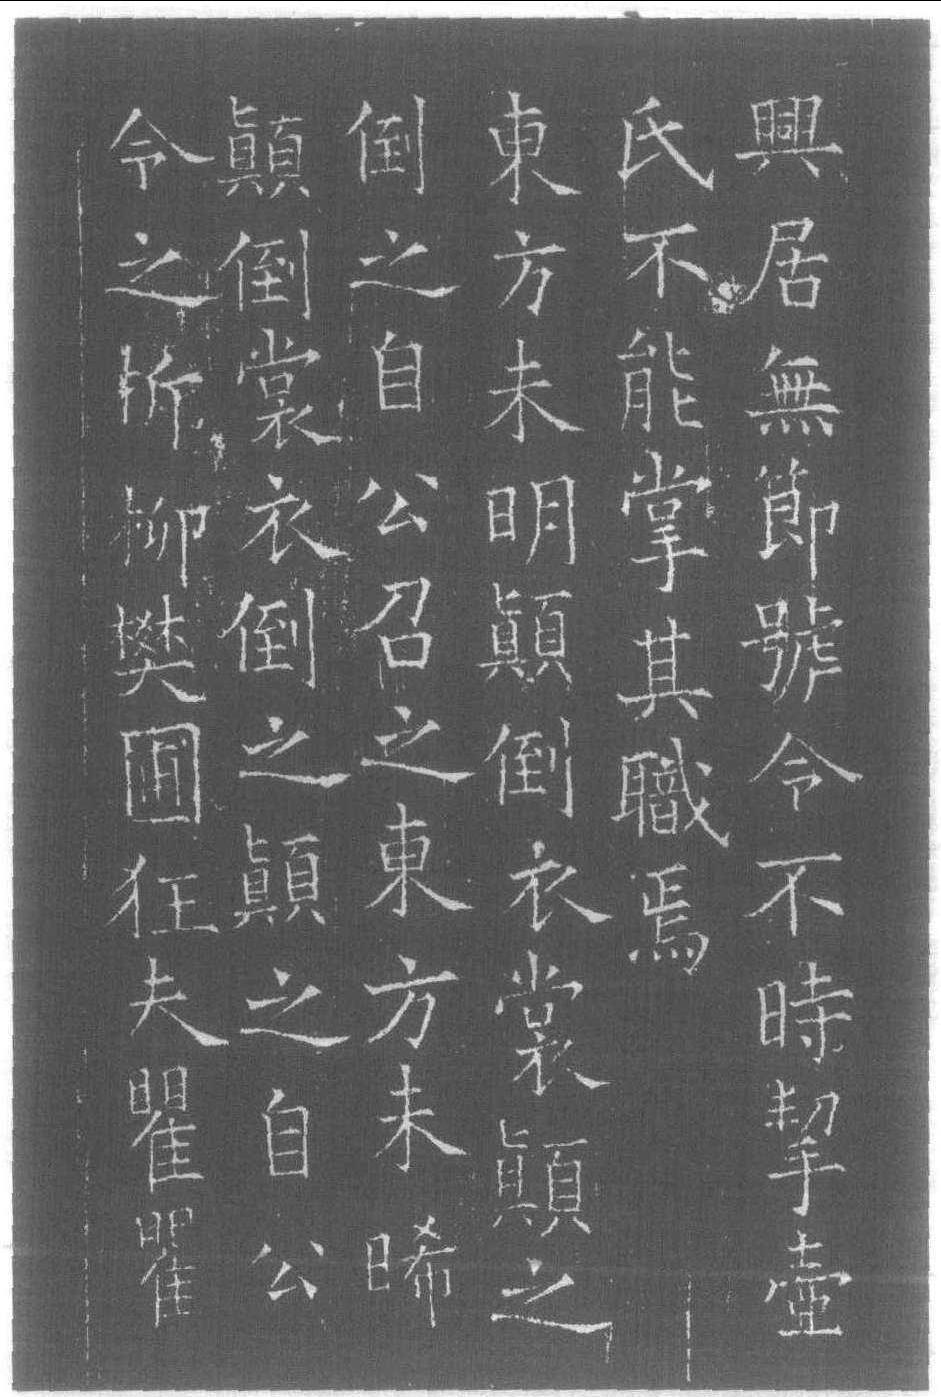 興居無節號令不時挈壷
氏不能掌其職焉
東方未明顛倒衣裳顛之
倒之自公召之東方未晞
顛倒裳衣倒之顛之自公
令之折柳樊圃狂夫瞿瞿